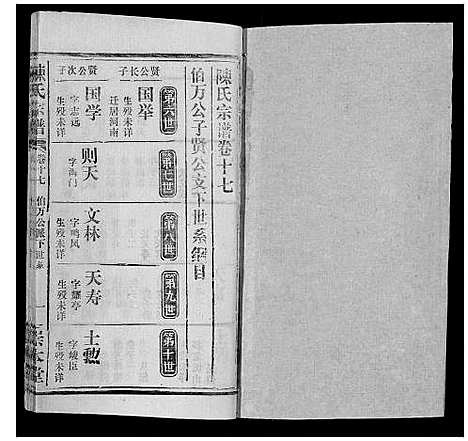 陳氏宗譜卷十七
伯万公子贤公支下世系纲目
第六世
贤公长子
国举
迁居河南
生殁未详
贤公次子
国学
字志远
生殁未详
第七世
则天
字海门
第八世
文林
字鸣凤
生殁未详
第九世
天寿
字耀亭
生殁未详
第十世
士勲
字竣臣
生殁未详
陳氏宗譜
卷十七
伯万公派下世系
一